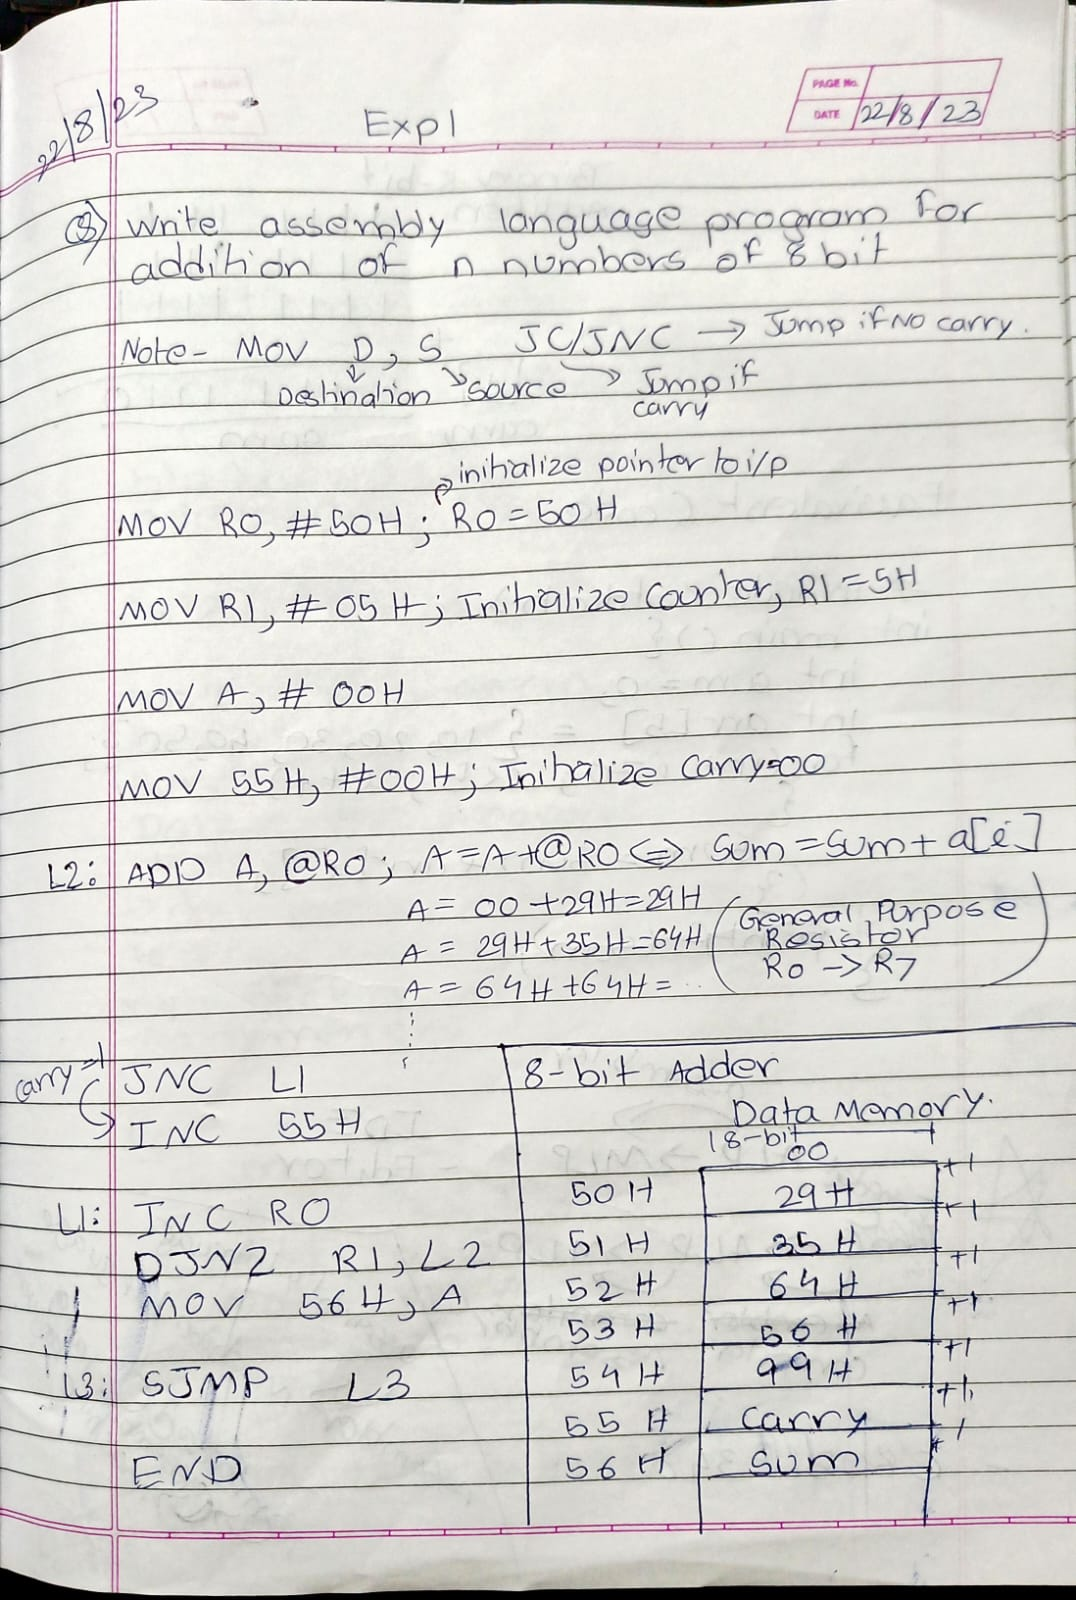 22/8/23
PAGE No.
DATE 22/8/23
Exp 1
Q) Write assembly language program for
addition of n numbers of 8 bit
Note- MOV D, S JC/JNC → Jump if No carry.
Destination Source Jump if
carry
initialize pointer to i/p
MOV R0, #50H; R0=50H
MOV R1, #05H; Initialize Counter, R1=5H
MOV A, #00H
MOV 55H, #00H; Initialize Carry=00
L2: ADD A, @R0; A=A+@R0 ⇔ Sum=Sum+a[i]
A= 00+29H=29H
A= 29H+35H=64H
A= 64H+64H= ..
(General Purpose
Resistor
R0 → R7)
carry=1
JNC L1
INC 55H
L1: INC R0
DJNZ R1, L2
MOV 56H, A
L3: SJMP L3
END
8-bit Adder
Data Memory.
8-bit
00
50H 29H +1
51H 35H +1
52H 64H +1
53H 56H +1
54H 99H +1
55H Carry +1
56H Sum +